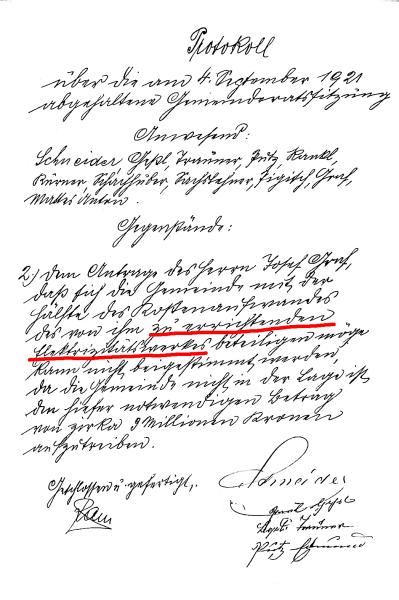 Protokoll
über die am 4. September 1921
abgehaltene Gemeinderatssitzung
Anwesend:
Schneider Gschl, Trauner, Putz, Kankl,
Kürner, Schachhuber, Sachslehner, Figisch, Graf,
Mattes Anton.
Gegenstände:
2.) Dem Antrage des Herrn Josef Graf,
daß sich die Gemeinde mit der
Hälfte des Kostenaufwandes
des von ihm zu errichtenden
Elektrizitätswerkes beteiligen möge
kann nicht beigestimmt werden,
da die Gemeinde nicht in der Lage ist
den hiefer notwendigen Betrag
von zirka 3 Millionen Kronen
aufzutreiben.
Geschlossen u. gefertigt.
Schneider
Trauner
Putz Edmund